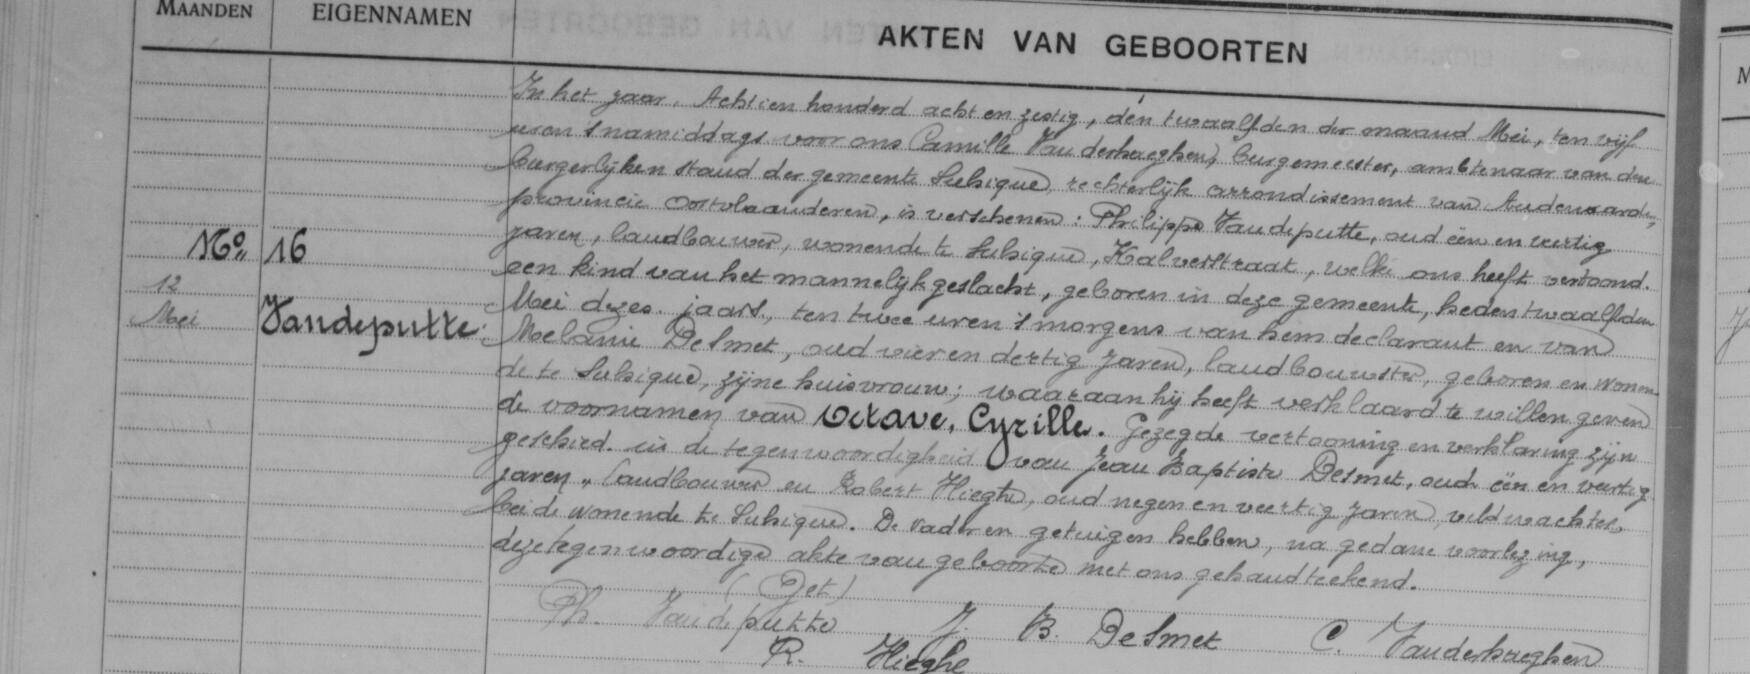 MAANDEN
EIGENNAMEN
AKTEN VAN GEBOORTEN
In het jaar, Achtien honderd acht en zestig, den twaalfden der maand Mei, ten vijf
uren 's namiddags voor ons Camille Vanderhaeghen, burgemeester, ambtenaar van den
burgerlijken stand der gemeente Sulsique, rechterlijk arrondissement van Audenaarde,
provincie Oostvlaanderen, is verschenen: Philippe Vandeputte, oud één en veertig
jaren, landbouwer, wonende te Sulsique, Kalverstraat, welke ons heeft vertoond
een kind van het mannelijk geslacht, geboren in deze gemeente, heden twaalfden
Mei dezes jaars, ten twee uren 's morgens van hem declarant en van
Melanie De Smet, oud vier en dertig jaren, landbouwster, geboren en wonen-
de te Sulsique, zijne huisvrouw; waaraan hij heeft verklaard te willen geven
de voornamen van Octave, Cyrille. Gezegde vertooning en verklaring zijn
geschied in de tegenwoordigheid van Jean Baptiste De Smet, oud één en veertig
jaren, landbouwer en Robert Hieghe, oud negen en veertig jaren, veldwachter,
beide wonende te Sulsique. De vader en getuigen hebben, na gedane voorlezing,
deze tegenwoordige akte van geboorte met ons gehandteekend.
No. 16
12
Mei
Vandeputte.
(Get)
Ph. Vandeputte J. B. De Smet C. Vanderhaeghen
R. Hieghe
M